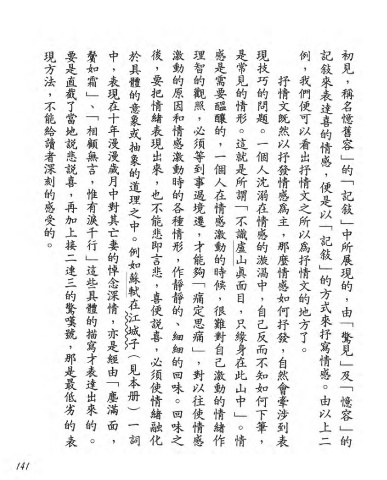 初見，稱名憶舊容」的「記敍」中所展現的，由「驚見」及「憶容」的
記敍來表達喜的情感，便是以「記敍」的方式來抒寫情感。由以上二
例，我們便可以看出抒情文之所以爲抒情文的地方了。
抒情文既然以抒發情感爲主，那麼情感如何抒發，自然會牽涉到表
現技巧的問題。一個人沈溺在情感的漩渦中，自己反而不知如何下筆，
是常見的情形。這就是所謂「不識盧山眞面目，只緣身在此山中」。情
感是需要醞釀的，一個人在情感激動的時候，很難對自己激動的情緒作
理智的觀照，必須等到事過境遷，才能夠「痛定思痛」，對以往使情感
激動的原因和情感激動時的各種情形，作靜靜的、細細的回味。回味之
後，要把情緒表現出來，也不能悲即言悲，喜便說喜，必須使情緒融化
於具體的意象或抽象的道理之中。例如蘇軾在江城子（見本册）一詞
中，表現在十年漫漫歲月中對其亡妻的悼念深情，亦是經由「塵滿面，
鬢如霜」、「相顧無言，惟有淚千行」這些具體的描寫才表達出來的。
要是直截了當地說悲說喜，再加上接二連三的驚嘆號，那是最低劣的表
現方法，不能給讀者深刻的感受的。
141